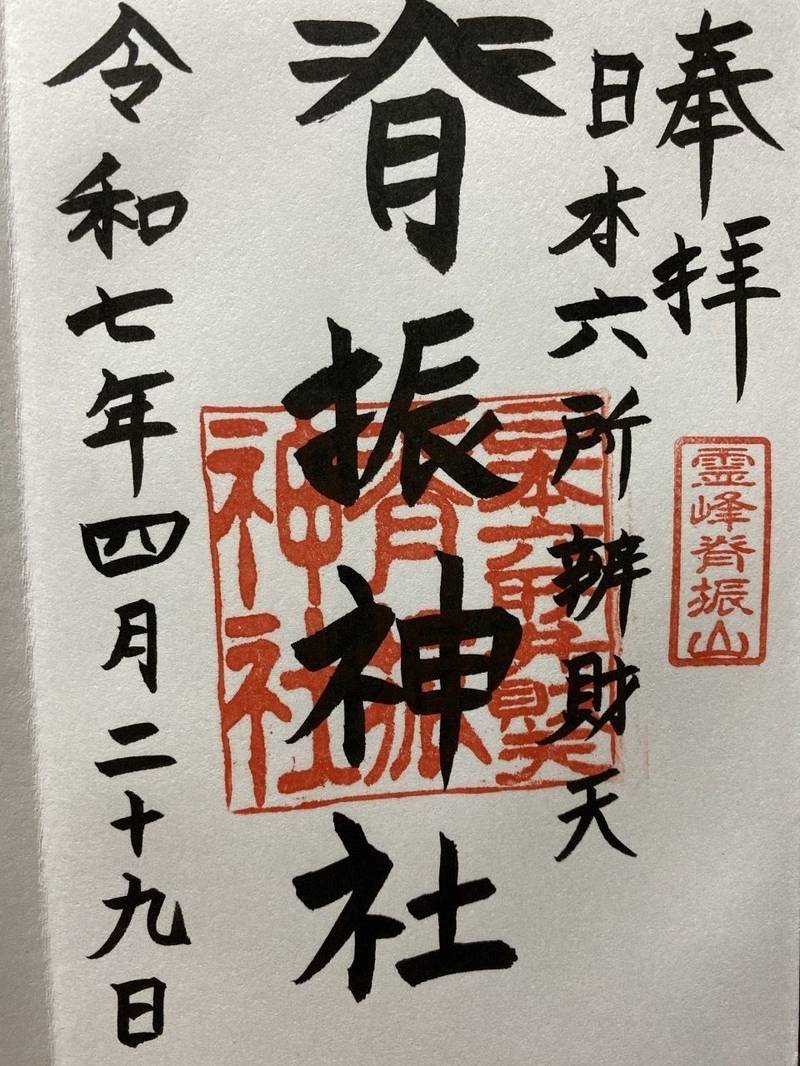 奉拝
霊峰脊振山
日本六所辨財天
脊振神社
日本六所辨財天
脊振
神社
令和七年四月二十九日